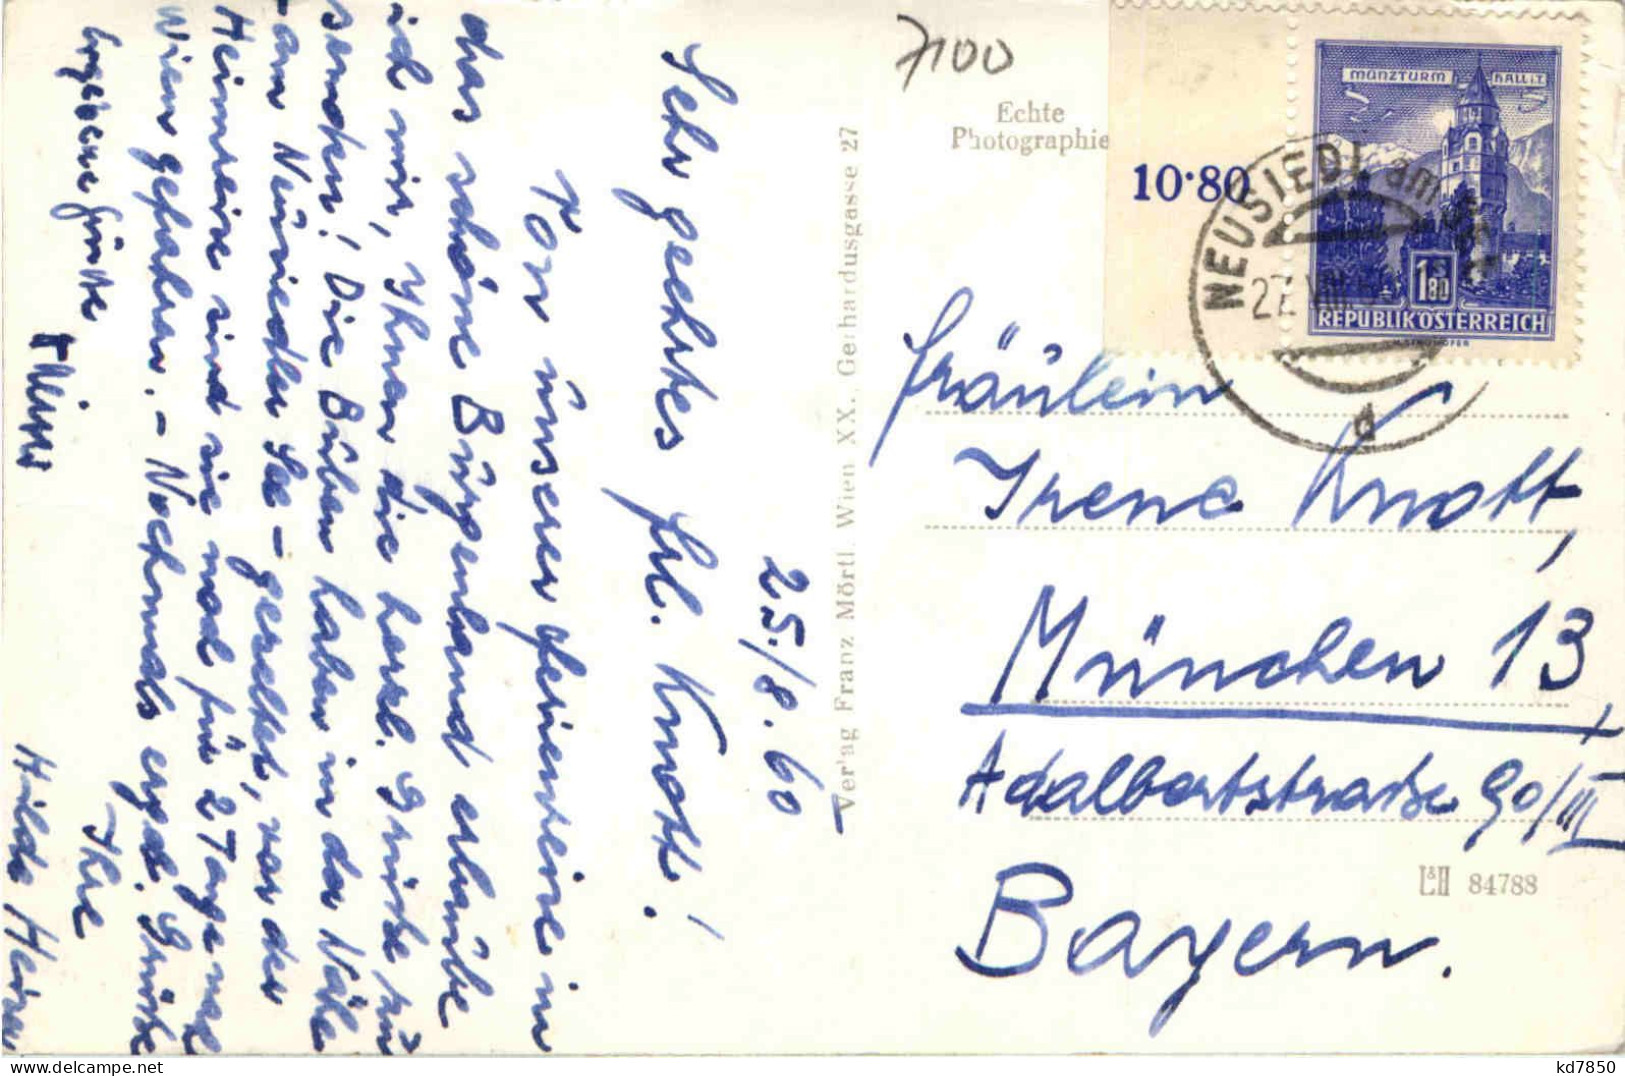 25./8.60
Sehr geehrtes Frl. Knott!
Von unserer Heimreise in
das schöne Burgenland erlaube
ich mir, Ihnen die herzl. Grüße zu
senden! Die Buben haben in der Nähe
- am Neusiedler See - gezeltet, vor der
Heimreise sind sie noch für 2 Tage nach
Wien gefahren. - Nochmals ergeb. Grüße
Ihre
Hilde
Ergebene Grüße
Verlag Franz Mörtl, Wien XX., Gerhardusgasse 27
7100
Echte
Photographie
10·80
MÜNZTURM HALL i.T.
1S80
REPUBLIK ÖSTERREICH
NEUSIEDL am See
27. VIII.
d
Fräulein
Irene Knott,
München 13
Adalbertstraße 90/III
Bayern.
L&H 84788
kd7850